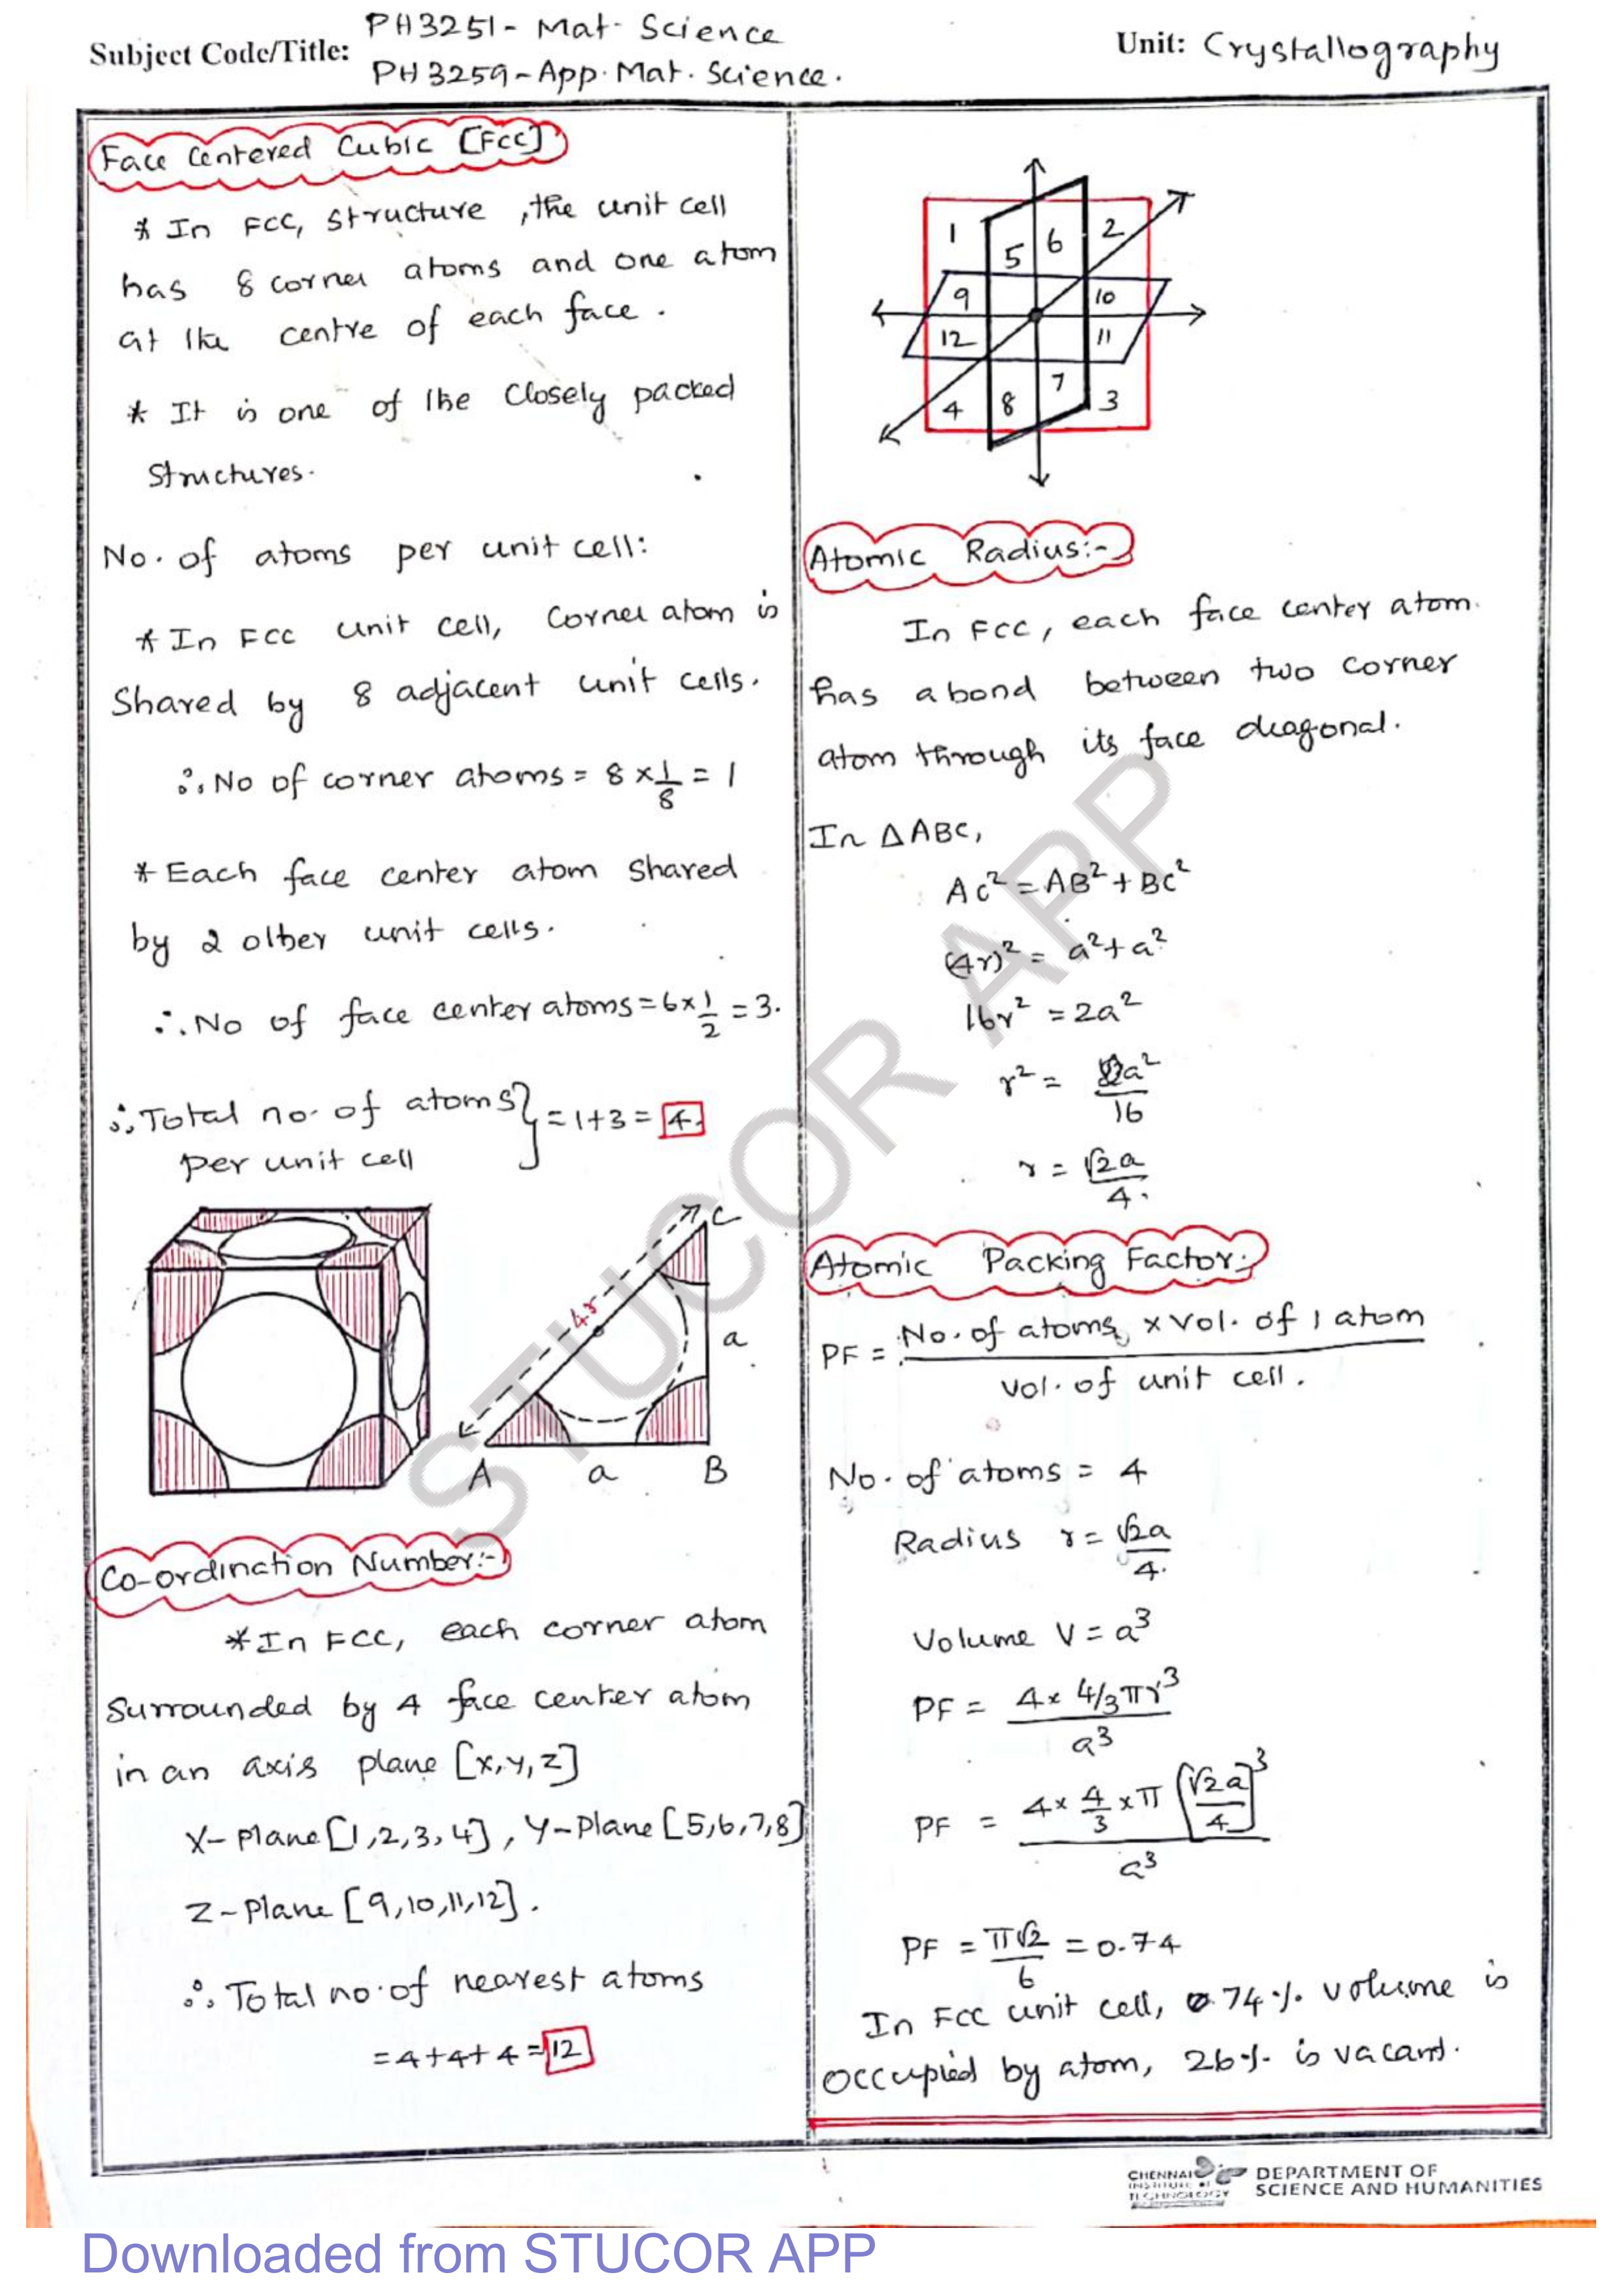 Subject Code/Title: PH3251- Mat. Science
PH3259-App. Mat. Science.
Unit: Crystallography
Face Centered Cubic [FCC]
* In FCC, structure, the unit cell
has 8 corner atoms and one atom
at the centre of each face.
* It is one of the closely packed
structures.
No. of atoms per unit cell:
* In FCC unit cell, Corner atom is
Shared by 8 adjacent unit cells.
∴ No of corner atoms = 8 × 1/8 = 1
* Each face center atom shared
by 2 other unit cells.
∴ No of face center atoms = 6 × 1/2 = 3.
∴ Total no. of atoms } = 1+3 = 4.
per unit cell
4r
C
a
A
a
B
Co-ordination Number:-
* In FCC, each corner atom
Surrounded by 4 face center atom
in an axis plane [x,y,z]
X-plane [1,2,3,4], Y-Plane [5,6,7,8]
Z-Plane [9,10,11,12].
∴ Total no. of nearest atoms
= 4+4+4 = 12
1
5
6
2
9
10
12
11
4
8
7
3
Atomic Radius:-
In FCC, each face center atom.
has a bond between two corner
atom through its face diagonal.
In △ABC,
AC² = AB² + BC²
(4r)² = a² + a²
16r² = 2a²
r² = 2a²/16
r = √2a/4.
Atomic Packing Factor:-
PF = No. of atoms × Vol. of 1 atom
Vol. of unit cell.
No. of atoms = 4
Radius r = √2a/4.
Volume V = a³
PF = 4 × 4/3πr³ / a³
PF = 4 × 4/3 × π [√2a/4]³ / a³
PF = π√2/6 = 0.74
In FCC unit cell, 74% volume is
occupied by atom, 26% is vacant.
STUCOR APP
CHENNAI
INSTITUTE OF
TECHNOLOGY
DEPARTMENT OF
SCIENCE AND HUMANITIES
Downloaded from STUCOR APP